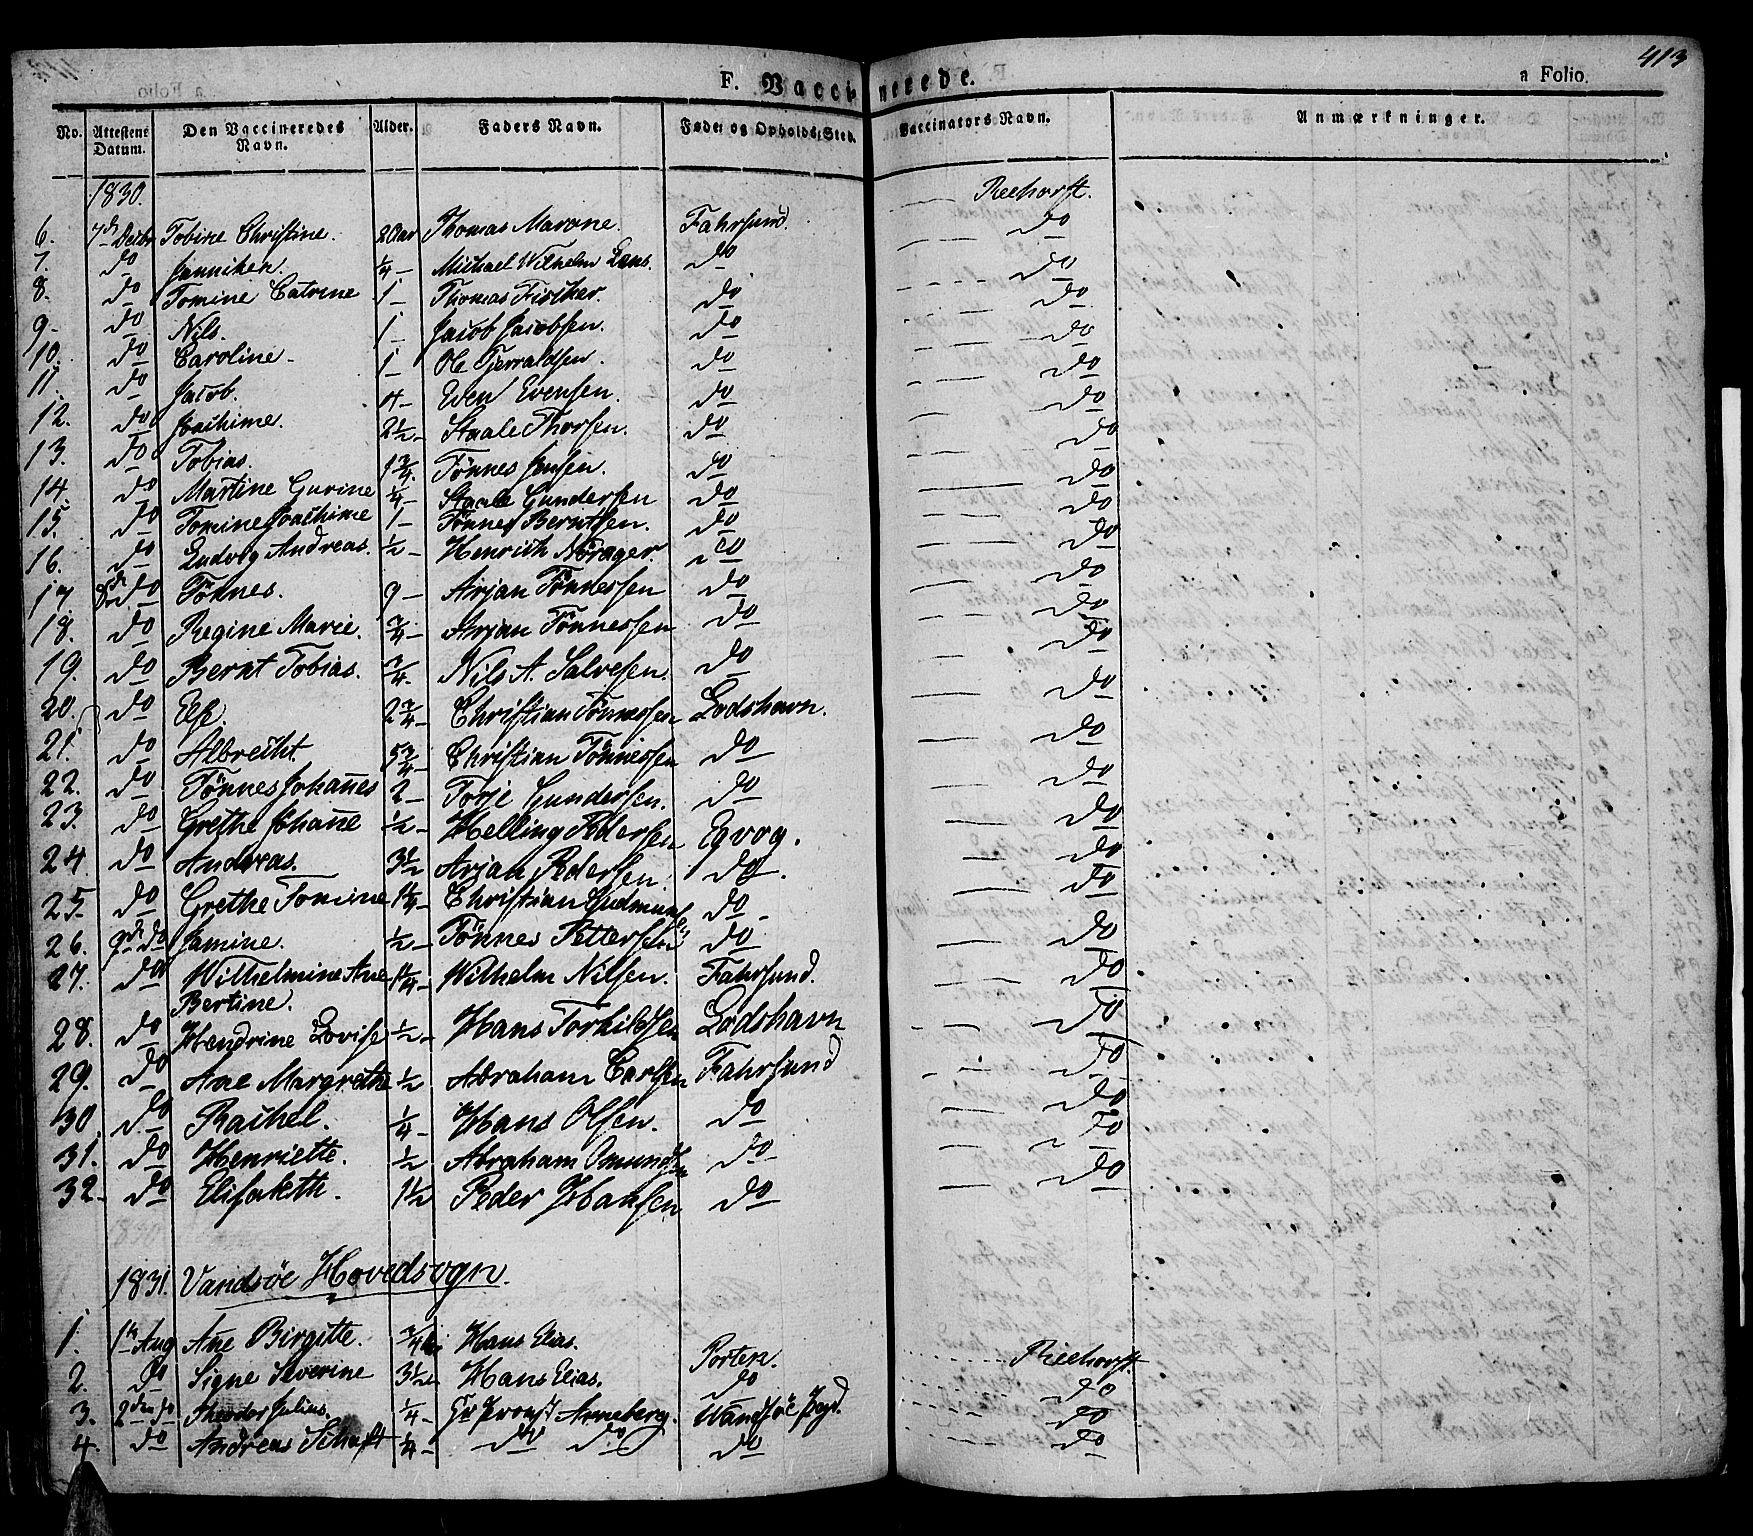 F. Vaccinerede.
a Folio.
413
No. Attestens Datum. Den Vaccineredes Navn. Alder. Faders Navn. Føde- og Opholds-Sted. Vaccinators Navn. Anmærkninger.
1830.
6. 7d Decbr Tobine Christine. 20 aar Thomas Marone. Fahrsund. Reehorst.
7. do Janniken. 1/4 - Michael Wilhelm Lans. do do
8. do Tomine Catrine 1 - Thomas Fischer. do do
9 - do Nils. 1 - Jacob Jacobsen. do do
10. do Caroline. 1 - Ole Tjerraldsen. do do
11. do Jacob. 4 - Even Evensen. do do
12. do Joachime. 2 1/2 - Staale Thorsen. do do
13. do Tobias. 1 3/4. Tönnes Jensen. do do
14. do Martine Gurine 1/4 - Staale Gundersen do do
15. do Tomine Joachime 1 - Tönnes Berntsen. do do
16. do Ludvig Andreas. 1/2 - Henrich Nörager. do do
17 8de do Tönnes. 9 - Arjan Tönnessen do do
18. do Regine Marie. 3/4 - Arjan Tönnessen do do
19. do Bernt Tobias. 3/4. Nils A. Salvesen. do do
20. do Else. 2 3/4 - Christian Tönnessen Lodshavn. do
21. do Albrecht. 5 3/4 - Christian Tönnessen do do
22. do Tönnes Johannes 2 - Torje Gundersen. do do
23. do Grethe Johanne 1/2 - Helling Pedersen Egvog. do
24 do Andreas. 3 1/2 Arjan Pedersen. do. do
25. do Grethe Tomine 1 1/4 - Christian Gudmundsen do - do
26. 9de do Jamine. 1/2 - Tönnes Pettersen do do
27. do Wilhelmine Ane 1 1/4 - Wilhelm Nilsen. Fahrsund. do
Bertine.
28. do Hendrine Lovise 1/2 - Hans Torkildsen Lodshavn do
29. do Ane Margrethe 1/2 Abraham Carlsen Fahrsund do
30. do Rachel. 1/4 - Hans Olsen. do do
31. do Henriette. 1/2 Abraham Omundsen do do
32. do Elisabeth. 1 1/2 Peder Hansen do do
1831. Vandsöe Hovedsogn.
1. 1ste Aug Ane Birgitte. 3/4 Hans Elias. Porten. Reehorst
2. do Signe Severine 3 1/2 Hans Elias. do do
3. 2den do Theodor Julius. 1/4 - Hr Provst Arneberg. Vandsöe Pgd. do
4. do Andreas Schaft 1/4 - do do do do